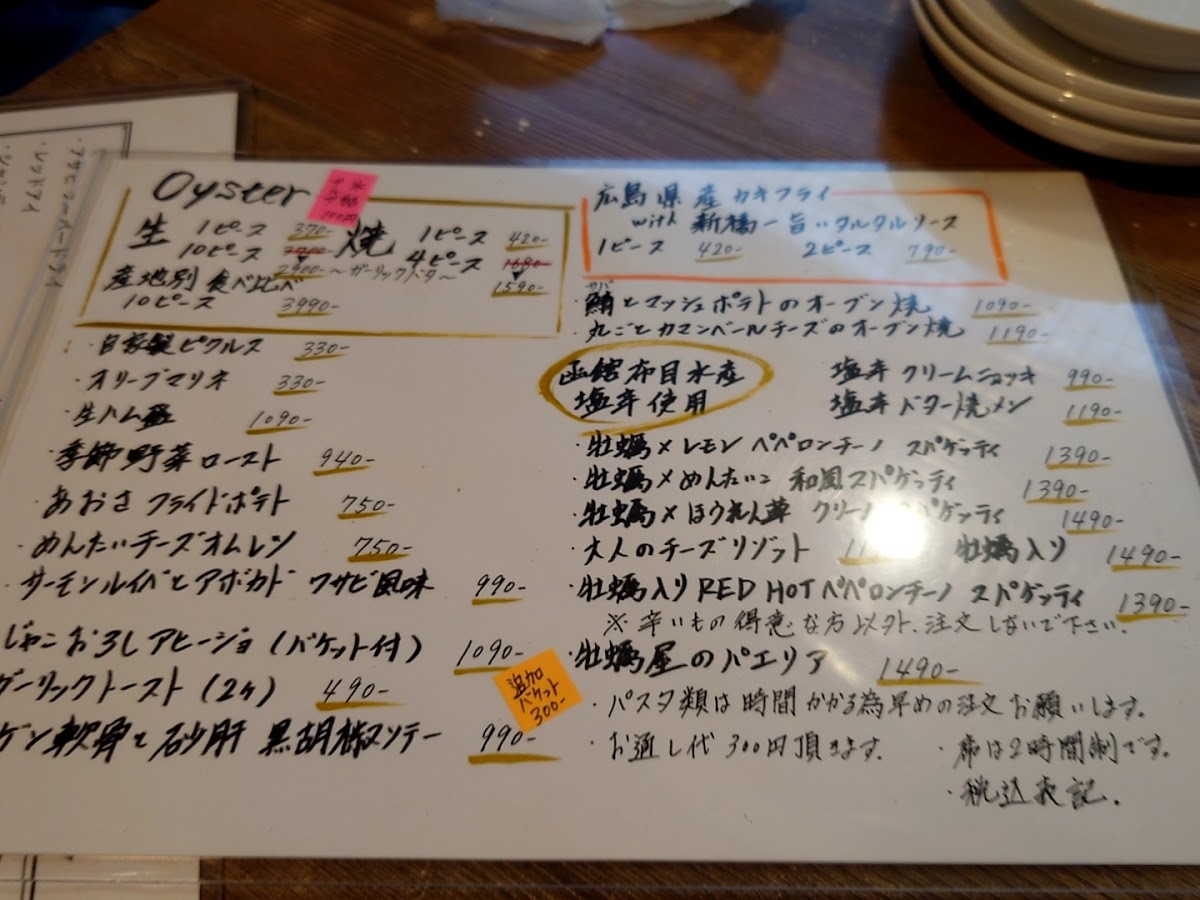 Oyster
生 1ピース 370-
10ピース 3700- 2900-
焼 1ピース 420-
4ピース 1680- 1590-
～ガーリックバター～
産地別 食べ比べ
10ピース 3990-
・自家製ピクルス 330-
・オリーブマリネ 330-
・生ハム 1090-
・季節野菜ロースト 940-
・あおさフライドポテト 750-
・めんたいチーズオムレツ 750-
サーモンルイベとアボカド ワサビ風味 990-
じゃこおろしアヒージョ(バケット付) 1090-
追加バケット 300-
ガーリックトースト(2ヶ) 490-
ゲン軟骨と砂肝 黒胡椒ソテー 990-
広島県産カキフライ
with 新橋一旨いタルタルソース
1ピース 420- 2ピース 790-
サバ
・鯖とマッシュポテトのオーブン焼 1090-
・丸ごとカマンベールチーズのオーブン焼 1190-
函館布目水産
塩辛使用
塩辛クリームニョッキ 990-
塩辛バター焼メン 1190-
・牡蠣×レモン ペペロンチーノ スパゲッティ 1390-
・牡蠣×めんたいこ 和風スパゲッティ 1390-
・牡蠣×ほうれん草 クリーム スパゲッティ 1490-
・大人のチーズリゾット 牡蠣入り 1490-
・牡蠣入りRED HOTペペロンチーノ スパゲッティ 1390-
※辛いもの得意な方以外、注文しないで下さい。
・牡蠣屋のパエリア 1490-
・パスタ類は時間かかる為早めの注文お願いします。
・お通し代300円頂きます。
・席は2時間制です。
・税込表記。
アサヒスーパードライ
レッドアイ